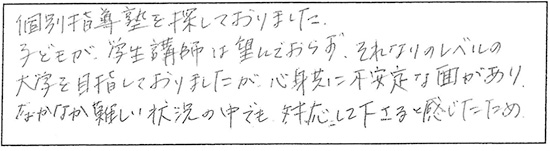 個別指導塾を探しておりました.
子どもが、学生講師は望んでおらず、それなりのレベルの
大学を目指しておりましたが、心身共に不安定な面があり、
なかなか難しい状況の中でも、対応して下さると感じたため